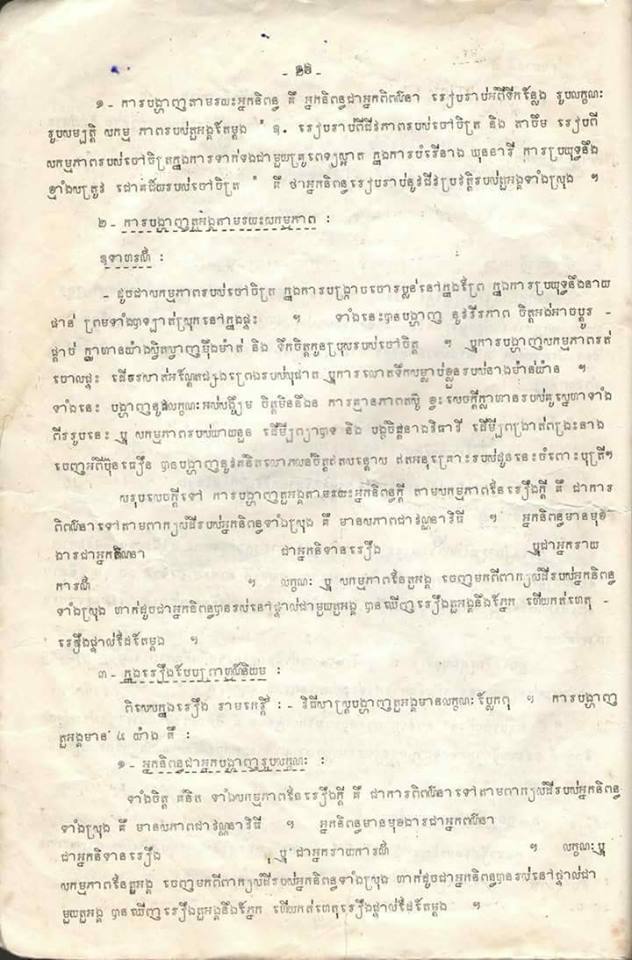 - ២៦ -
១ - ការបង្ហាញតាមរយះអ្នកនិពន្ធ គឺ អ្នកនិពន្ធជាអ្នកពិពណ៌នា រៀបរាប់អំពីទីកន្លែង រូបលក្ខណៈ
រូបសម្បត្តិ សកម្ម ភាពរបស់តួអង្គតែម្តង " ឧ. រៀបរាប់ពីជីវភាពរបស់ចៅចិត្រ និង តាចឹម រៀបពី
សកម្មភាពរបស់ចៅចិត្រក្នុងការទាក់ទងជាមួយគ្រូពេទ្យស្អាត ក្នុងការបំរើនាង ឃុននារី ការប្រយុទ្ធនឹង
ខ្មាំងសត្រូវ ជោគជ័យរបស់ចៅចិត្រ " គឺ ថាអ្នកនិពន្ធរៀបរាប់នូវជីវប្រវត្តិរបស់តួអង្គទាំងស្រុង ។
២ - ការបង្ហាញតួអង្គតាមរយះសកម្មភាព :
ឧទាហរណ៍ :
- ដូចជាសកម្មភាពរបស់ចៅចិត្រ ក្នុងការបង្ក្រាបចោរប្លន់នៅក្នុងព្រៃ ក្នុងការប្រយុទ្ធនឹងនាយ
ផាន់ ព្រមទាំងបាឡាត់ស្រុកនៅក្នុងផ្ទះ ។ ទាំងនេះបានបង្ហាញ នូវវីរភាព ចិត្តអង់អាចប្តូរ -
ផ្តាច់ ក្លាហានយ៉ាងស្វិតស្វាញម៉ឺងម៉ាត់ និង ទឹកចិត្តកូនប្រុសរបស់ចៅចិត្ត ។ ឬការបង្ហាញសកម្មភាពរត់
ចោលផ្ទះ ដើររសាត់អណ្តែតផ្សងព្រេងរបស់បុផាត ឬការលោតទឹកសម្លាប់ខ្លួនរបស់នាងម៉ាន់យ៉ាន ។
ទាំងនេះ បង្ហាញនូវលក្ខណៈអស់សង្ឃឹម ចិត្តមិននឹងន ការគ្មានភាពតស៊ូ ខ្វះសេចក្តីក្លាហានរបស់គូស្នេហាទាំង
ពីររូបនេះ ឬ សកម្មភាពរបស់យាយនួន ដើម្បីព្យាបាទ និង បង្ខូចចិត្តនាងវិធារី ដើម្បីពង្រាត់ពង្រងនាង
ចេញអំពីប៊ុនធឿន បានបង្ហាញនូវគំនិតលោភលន់ចិត្តឥតសន្តោស ឥតអនុគ្រោះរបស់ដូននេះចំពោះបុត្រី។
សរុបសេចក្តីទៅ ការបង្ហាញតួអង្គតាមរយះអ្នកនិពន្ធក្តី តាមសកម្មភាពនៃរឿងក្តី គឺ ជាការ
ពិពណ៌នាទៅតាមពាក្យសំដីរបស់អ្នកនិពន្ធទាំងស្រុង គឺ មានសភាពជាវណ្ណនាវិធី ។ អ្នកនិពន្ធមានមុខ
ងារជាអ្នកពណ៌នា ជាអ្នកនិទានរឿង ឬជាអ្នករាយ
ការណ៍ ។ លក្ខណៈ ឬ សកម្មភាពនៃតួអង្គ ចេញមកពីពាក្យសំដីរបស់អ្នកនិពន្ធ
ទាំងស្រុង ហាក់ដូចជាអ្នកនិពន្ធបានរស់នៅផ្ទាល់ជាមួយតួអង្គ បានឃើញរឿងតួអង្គនឹងភ្នែក ហើយកត់ហេតុ -
រឿងផ្ទាល់ដៃតែម្តង ។
៣ - ក្នុងរឿងបែបព្រាហ្មណ៍និយម :
ពិសេសក្នុងរឿង រាមកេរ្តិ៍ : - វិធីសាស្ត្របង្ហាញតួអង្គមានលក្ខណៈប្លែកៗ ។ ការបង្ហាញ
តួអង្គមាន ៤ យ៉ាង គឺ :
១ - អ្នកនិពន្ធជាអ្នកបង្ហាញរូបលក្ខណៈ :
ទាំងចិត្ត គំនិត ទាំងសកម្មភាពនៃរឿងក្តី គឺ ជាការពិពណ៌នាទៅតាមពាក្យសំដីរបស់អ្នកនិពន្ធ
ទាំងស្រុង គឺ មានសភាពជាវណ្ណនាវិធី ។ អ្នកនិពន្ធមានមុខងារជាអ្នកពណ៌នា
ជាអ្នកនិទានរឿង ឬ ជាអ្នករាយការណ៍ ។ លក្ខណៈឬ
សកម្មភាពនៃតួអង្គ ចេញមកពីពាក្យសំដីរបស់អ្នកនិពន្ធទាំងស្រុង ហាក់ដូចជាអ្នកនិពន្ធបានរស់នៅផ្ទាល់ជា
មួយតួអង្គ បានឃើញរឿងតួអង្គនឹងភ្នែក ហើយកត់ហេតុរឿងផ្ទាល់ដៃតែម្តង ។